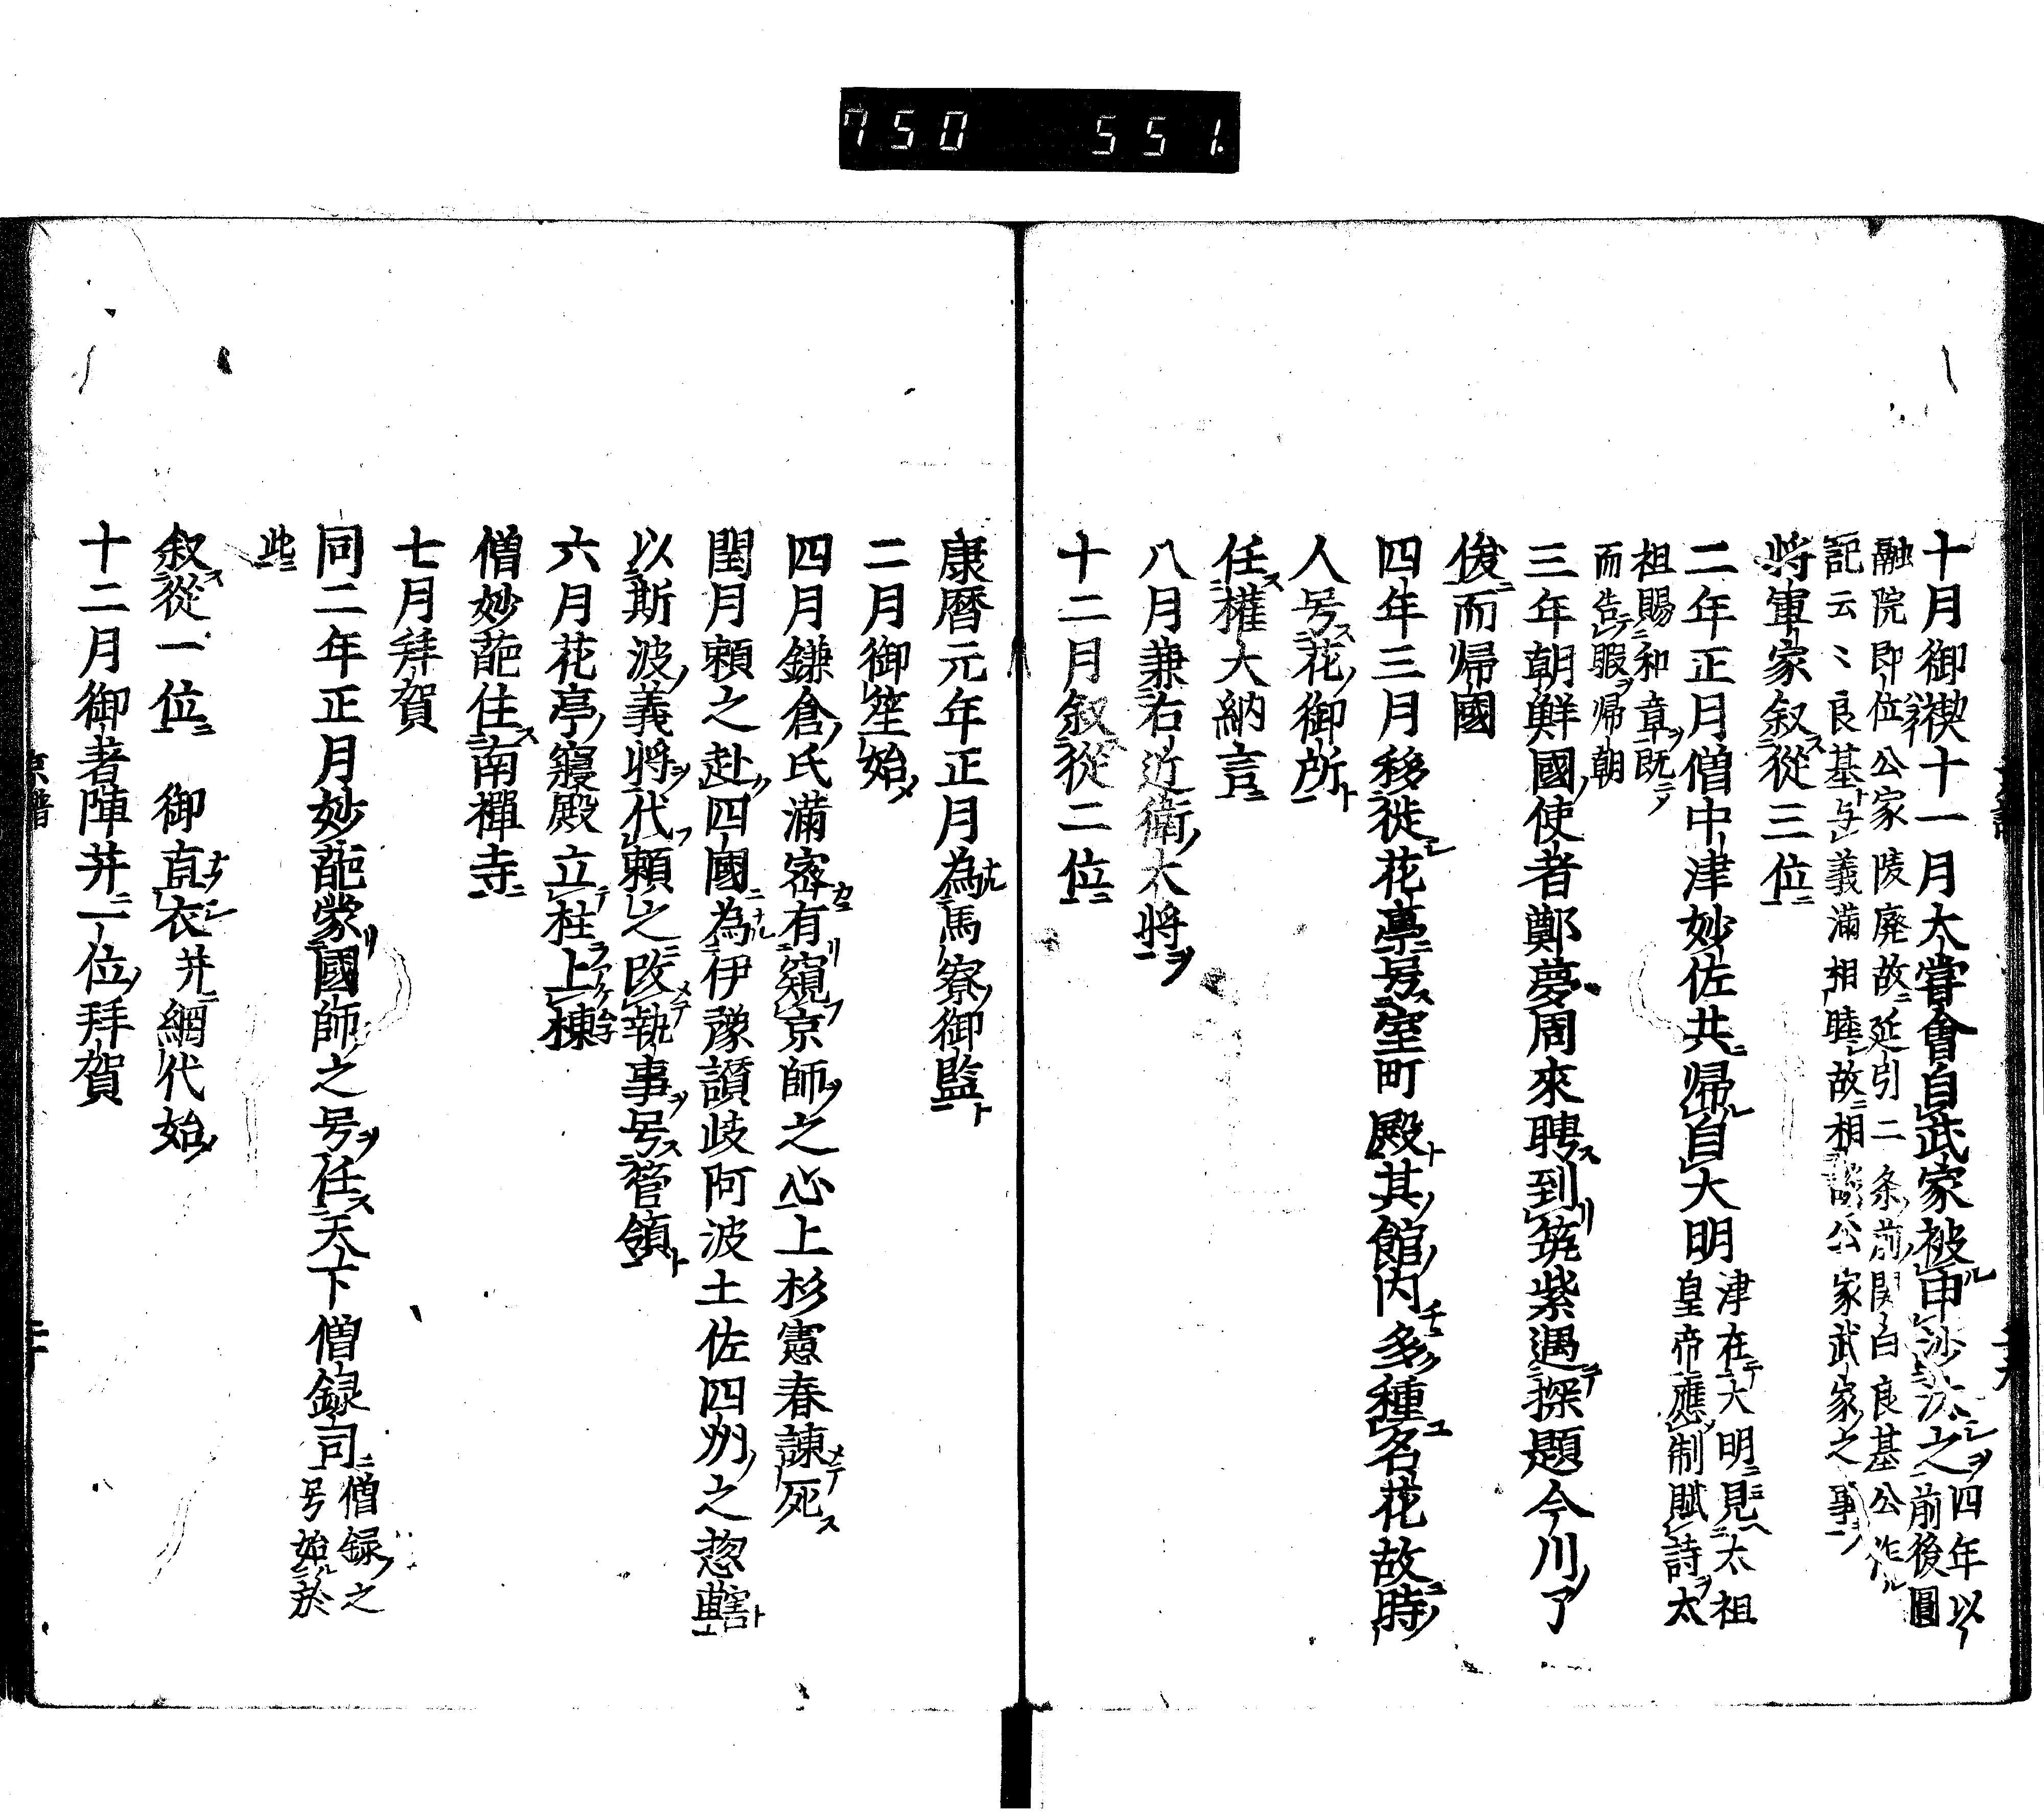 750 551.
十月御禊十一月大嘗會自武家被申沙汰之四年以前後圓
融院即位公家陵廃故延引二条前関白良基公作
記云〻良基与義満相睦故相談公家武家之事
将軍家叙從三位
二年正月僧中津妙佐共帰自大明津在大明見太祖皇帝應制賦詩太
祖賜和章既
而告暇帰朝
三年朝鮮國使者鄭夢周來聘到筑紫遇探題今川了
俊而帰國
四年三月移徙花亭号室町殿其館内多種名花故時
人号花御所
任權大納言
八月兼右近衛大将
十二月叙從二位
康暦元年正月為馬寮御監
二月御笙始
四月鎌倉氏満密有窺京師之心上杉憲春諫死
閏月頼之赴四國為伊豫讃岐阿波土佐四州之惣轄
以斯波義将代頼之改執事号管領
六月花亭寢殿立柱上棟
僧妙葩住南禪寺
七月拜賀
同二年正月妙葩蒙國師之号任天下僧録司僧録之号始於
此
叙從一位 御直衣并網代始
十二月御著陣并一位拜賀